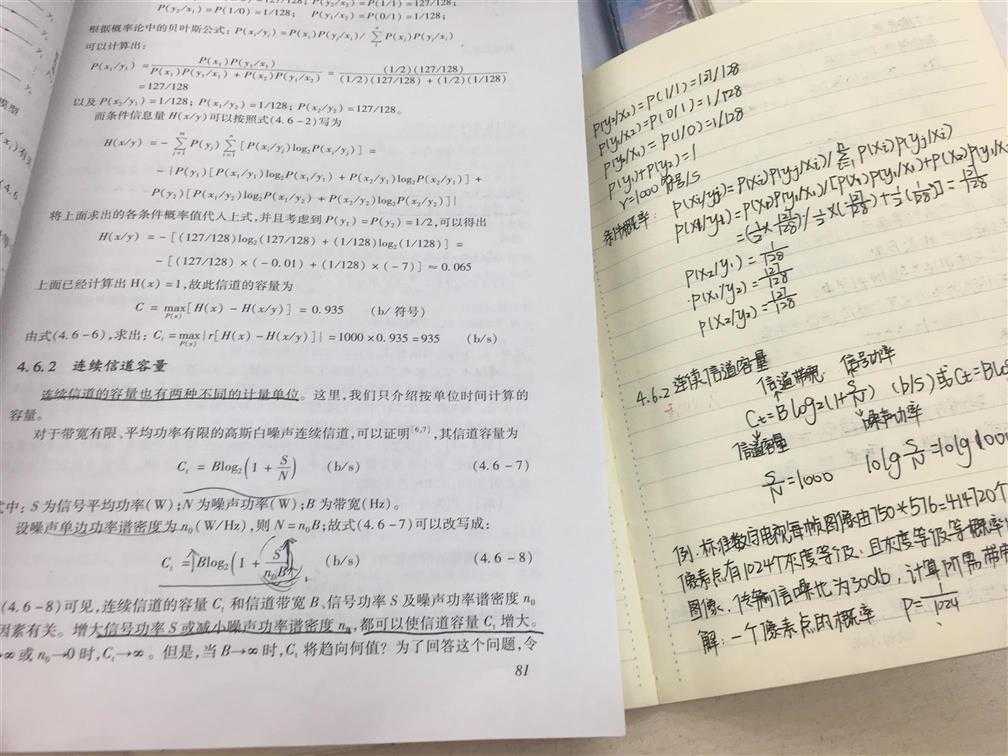 P(y₂/x₁) = P(1/0) = 1/128; P(y₁/x₂) = P(0/1) = 1/128;
根据概率论中的贝叶斯公式:P(xᵢ/yⱼ) = P(xᵢ)P(yⱼ/xᵢ)/∑P(xᵢ)P(yⱼ/xᵢ)
可以计算出:
P(x₁/y₁) = P(x₁)P(y₁/x₁) / (P(x₁)P(y₁/x₁) + P(x₂)P(y₁/x₂)) = (1/2)(127/128) / ((1/2)(127/128) + (1/2)(1/128))
= 127/128
以及 P(x₂/y₁) = 1/128; P(x₁/y₂) = 1/128; P(x₂/y₂) = 127/128。
而条件信息量 H(x/y)可以按照式(4.6-2)写为
H(x/y) = - ∑P(yⱼ)∑[P(xᵢ/yⱼ)log₂P(xᵢ/yⱼ)] =
- {P(y₁)[P(x₁/y₁)log₂P(x₁/y₁) + P(x₂/y₁)log₂P(x₂/y₁)] +
P(y₂)[P(x₁/y₂)log₂P(x₁/y₂) + P(x₂/y₂)log₂P(x₂/y₂)]}
将上面求出的各条件概率值代入上式,并且考虑到 P(y₁) = P(y₂) = 1/2,可以得出
H(x/y) = - [(127/128)log₂(127/128) + (1/128)log₂(1/128)] =
- [(127/128) × (-0.01) + (1/128) × (-7)] ≈ 0.065
上面已经计算出 H(x) = 1,故此信道的容量为
C = max P(x) [H(x) - H(x/y)] = 0.935 (b/符号)
由式(4.6-6),求出: Cₜ = max P(x) {r[H(x) - H(x/y)]} = 1000 × 0.935 = 935 (b/s)
4.6.2 连续信道容量
连续信道的容量也有两种不同的计量单位。这里,我们只介绍按单位时间计算的
容量。
对于带宽有限、平均功率有限的高斯白噪声连续信道,可以证明[6,7],其信道容量为
Cₜ = Blog₂(1 + S/N) (b/s) (4.6-7)
式中: S 为信号平均功率(W); N 为噪声功率(W); B 为带宽(Hz)。
设噪声单边功率谱密度为 n₀(W/Hz),则 N = n₀B;故式(4.6-7)可以改写成:
Cₜ = Blog₂(1 + S/n₀B) (b/s) (4.6-8)
(4.6-8)可见,连续信道的容量 Cₜ 和信道带宽 B、信号功率 S 及噪声功率谱密度 n₀
因素有关。增大信号功率 S 或减小噪声功率谱密度 n₀,都可以使信道容量 Cₜ 增大。
→∞ 或 n₀→0 时,Cₜ→∞。但是,当 B→∞ 时,Cₜ 将趋向何值?为了回答这个问题,令
81
P(y₂/x₂)=P(1/1)=127/128
P(y₁/x₂)=P(0/1)=1/128
P(y₂/x₁)=P(1/0)=1/128
P(y₁)+P(y₂)=1
r=1000符号/s
条件概率: P(xᵢ/yⱼ)=P(xᵢ)P(yⱼ/xᵢ)/∑P(xᵢ)P(yⱼ/xᵢ)
P(x₁/y₁)=P(x₁)P(y₁/x₁)/[P(x₁)P(y₁/x₁)+P(x₂)P(y₁/x
=(1/2×127/128)/[1/2×(127/128)+1/2(1/128)]=127/128
P(x₂/y₁)=1/128
P(x₁/y₂)=127/128
P(x₂/y₂)=127/128
4.6.2 连续信道容量
信道带宽 信号功率
Cₜ=Blog₂(1+S/N) (b/s) 或Cₜ=Blo
信道容量 噪声功率
S/N=1000 10lg S/N=10lg1000
例.标准数字电视每帧图像由750*576=414720个
像素点有1024个灰度等级,且灰度等级等概率
图像,传输信噪比为30db,计算所需带
解:一个像素点的概率 P=1/1024